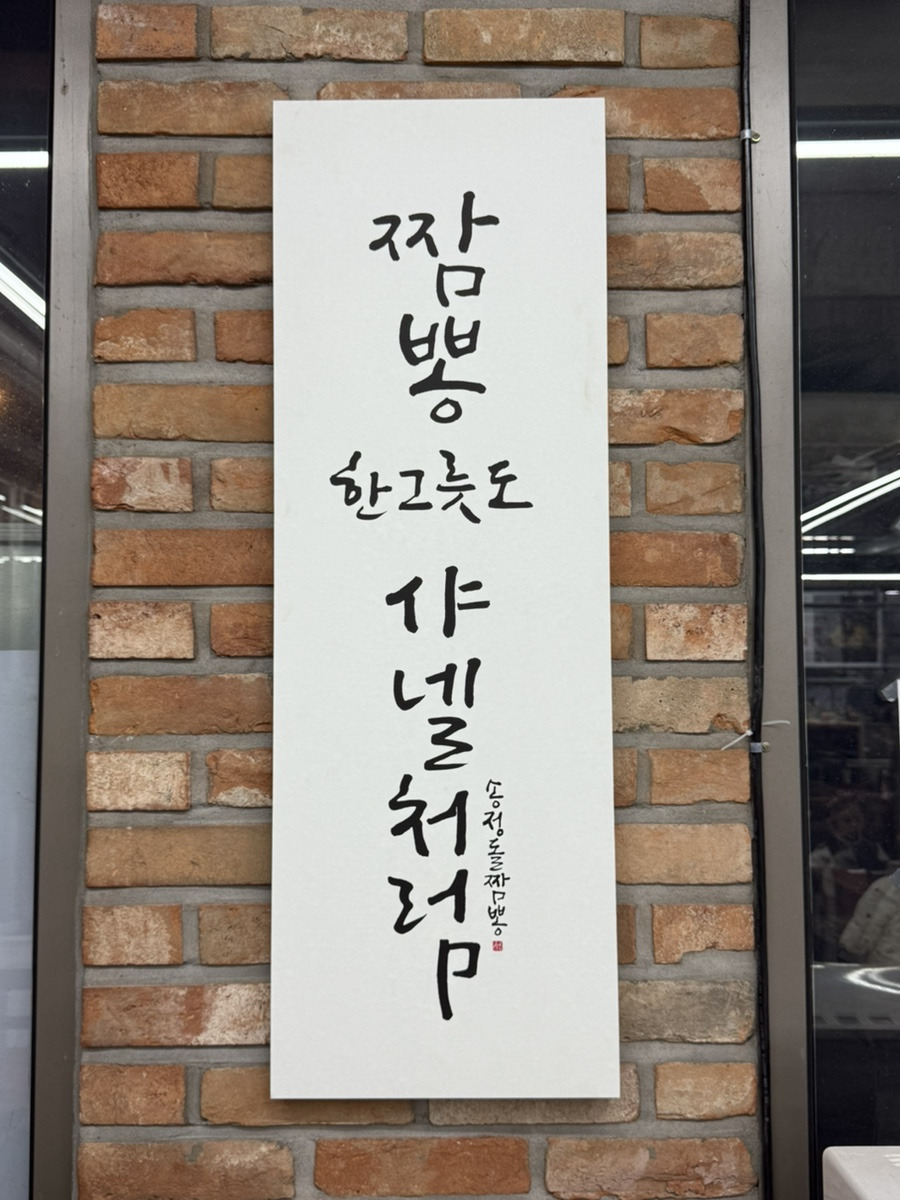 짬
뽕
한그릇도
샤
넬
처
럼
송정돌짬뽕